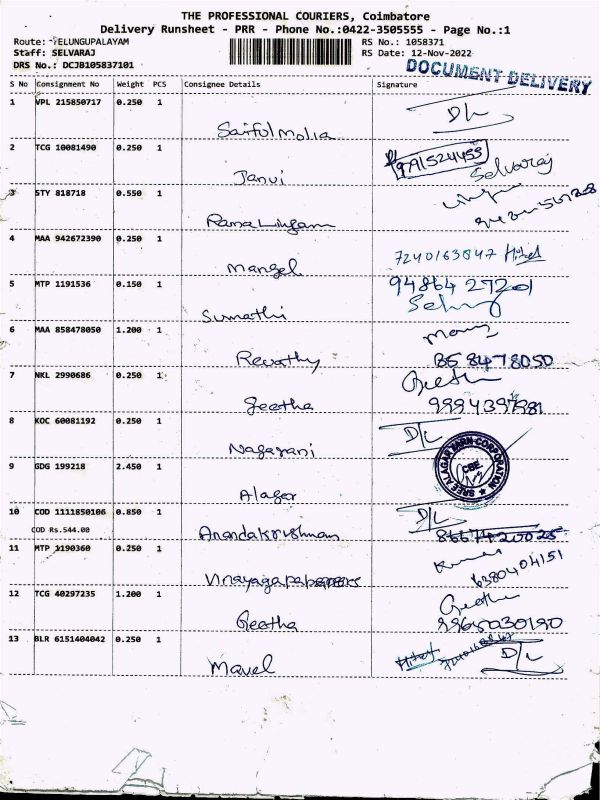 THE PROFESSIONAL COURIERS, Coimbatore
Delivery Runsheet - PRR - Phone No.:0422-3505555 - Page No.:1
Route: TELUNGUPALAYAM RS No.: 1058371
Staff: SELVARAJ RS Date: 12-Nov-2022
DRS No.: DCJB105837101 DOCUMENT DELIVERY
S No Consignment No Weight PCS Consignee Details Signature
1 VPL 215850717 0.250 1 D/L
Saiful molia
2 TCG 10081490 0.250 1 9791524455 Selvaraj
Janvi
3 STY 818718 0.550 1
Ramalingam
4 MAA 942672390 0.250 1 7240163847
Mangel
5 MTP 1191536 0.150 1 94864 27201
Sumathi
6 MAA 858478050 1.200 1
Revathy 858478050
7 NKL 2990686 0.250 1 Geetha
Geetha 9994397981
8 KOC 60081192 0.250 1 D/L
Nagarani
9 GDG 199218 2.450 1 SREE ALAGAR YARN CORPORATION CBE.
Alagar
10 COD 1111850106 0.850 1 D/L
COD Rs.544.00
Anandakrishnan
11 MTP 1190360 0.250 1 6380404151
Vinayaga papers
12 TCG 40297235 1.200 1 Geetha
Geetha 9965030190
13 BLR 6151404042 0.250 1 D/L
Mavel